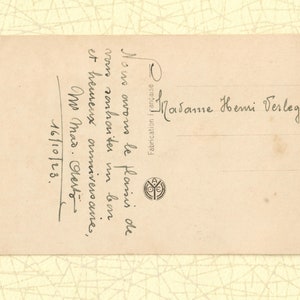 Nous avons le plaisir de
vous souhaiter un bon
et heureux anniversaire,
Mr Mad.
16/10/23.
Fabrication Française
Madame Henri